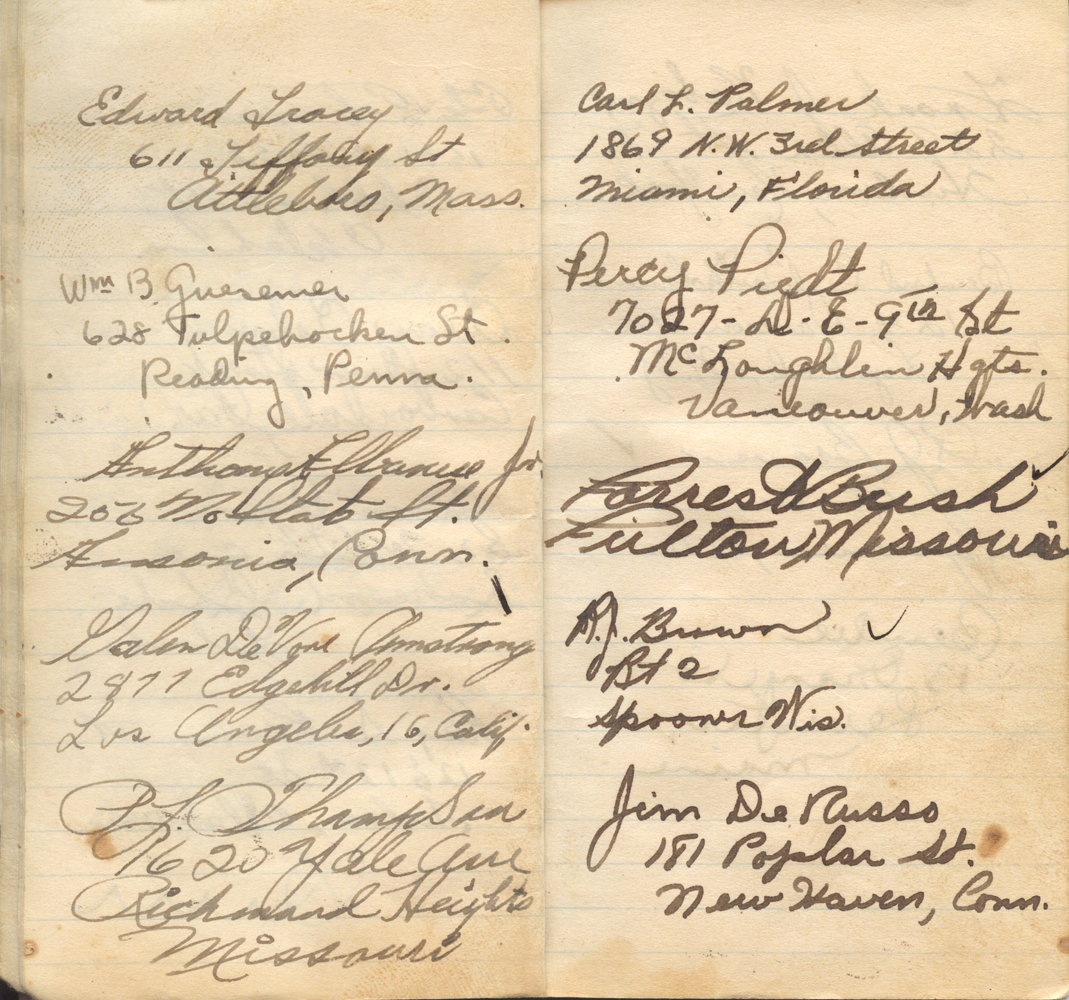 Edward Tracey
611 Tiffany St
Attleboro, Mass.
Wm B. Gueremer
628 Tulpehocken St.
Reading, Penna.
Anthony Jr.
St.
Ansonia, Conn.
Galen DeVore Armstrong
2877 Edgehill Dr.
Los Angeles, 16, Calif.
P. L. Thompson
7620 Yale Ave
Richmond Heights
Missouri
Carl L. Palmer
1869 N.W. 3rd street
Miami, Florida
Percy Piedt
7027- D- E- 9th St
McLoughlin Hgts.
Vancouver, Wash
Forrest Bush
Fulton, Missouri
R.J. Brown
Rt 2
Spooner Wis.
Jim DeRusso
181 Poplar St.
New Haven, Conn.